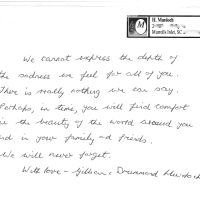 H. Murdoch
Murrells Inlet, SC
We cannot express the depth of
the sadness we feel for all of you.
There is really nothing we can say.
Perhaps, in time, you will find comfort
in the beauty of the world around you
and in your family and friends.
We will never forget.
With love - Gillian & Drummond Murdoch